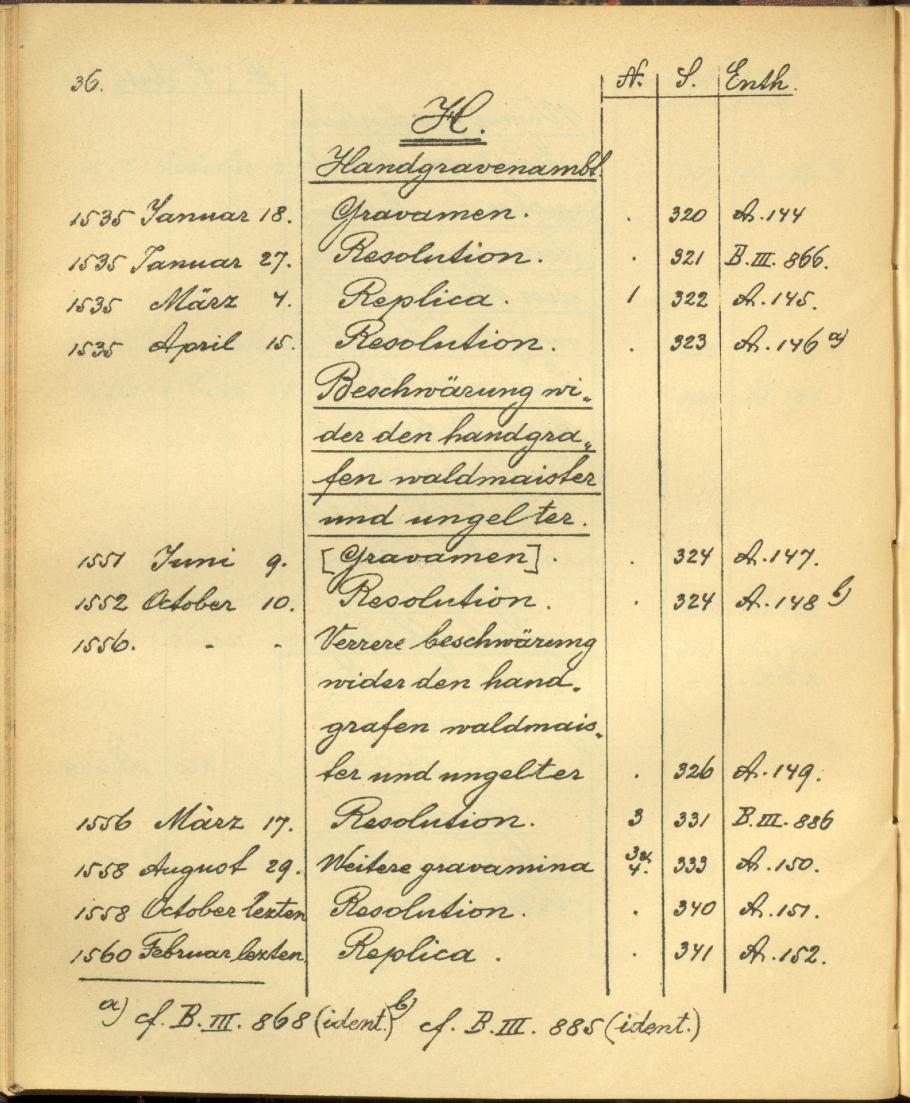 36. N. S. Enth.
H.
Handgravenambt.
1535 Januar 18. Gravamen. . 320 A. 144
1535 Januar 27. Resolution. . 321 B. III. 866.
1535 März 4. Replica. 1 322 A. 145.
1535 April 15. Resolution. . 323 A. 146 a)
Beschwärung wi„
der den handgra„
fen waldmaister
und ungelter.
1551 Juni 9. [Gravamen]. . 324 A. 147.
1552 October 10. Resolution. . 324 A. 148 b)
1556. - - Verrere beschwärung
wider den hand„
grafen waldmais„
ter und ungelter . 326 A. 149.
1556 März 17. Resolution. 3 331 B. III. 886
1558 August 29. Weitere gravamina 3 u. 4. 333 A. 150.
1558 October lezten Resolution. . 340 A. 151.
1560 Februar lezten. Replica . . 341 A. 152.
a) cf. B. III. 868 (ident.) b) cf. B. III. 885 (ident.)